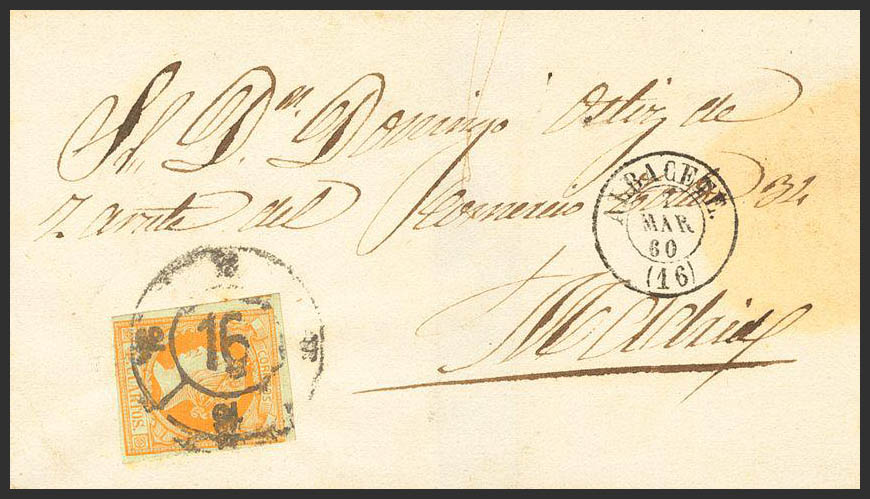 Sr. Dn. Domingo Ortiz de
Zarate del Comercio 34
Madrid
ALBACETE
MAR
60
(16)
16
CUARTOS